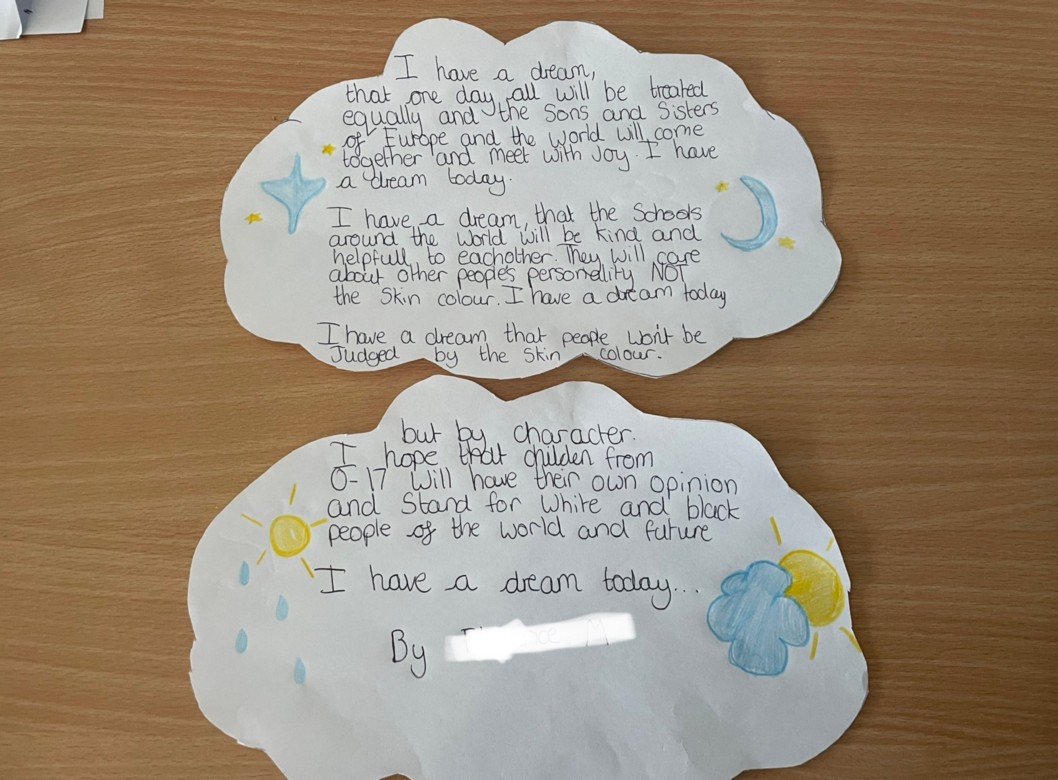 I have a dream,
that one day all will be treated
equally and the Sons and Sisters
of Europe and the World will come
together and meet with Joy. I have
a dream today.
I have a dream, that the Schools
around the World will be kind and
helpfull to eachother. They will care
about other people's personality NOT
the Skin colour. I have a dream today
I have a dream that people won't be
Judged by the Skin colour.
but by character.
I hope that childen from
0-17 Will have their own opinion
and Stand for White and black
people of the world and future
I have a dream today...
By